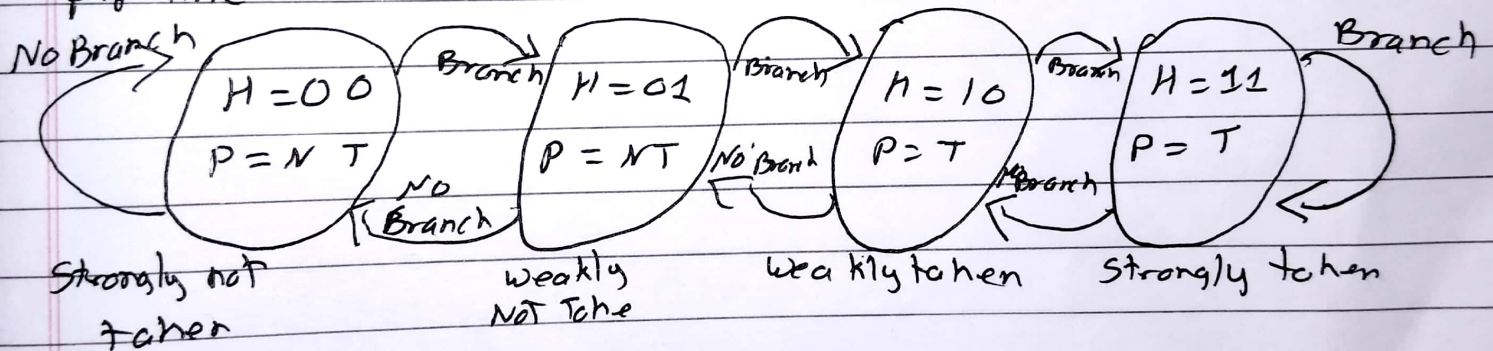 No Branch
H = 00
P = N T
Branch
H = 01
P = NT
Branch
H = 10
P = T
Branch
H = 11
P = T
Branch
No
Branch
No Branch
No Branch
Strongly not
taken
weakly
NOT Take
Weakly taken
Strongly taken